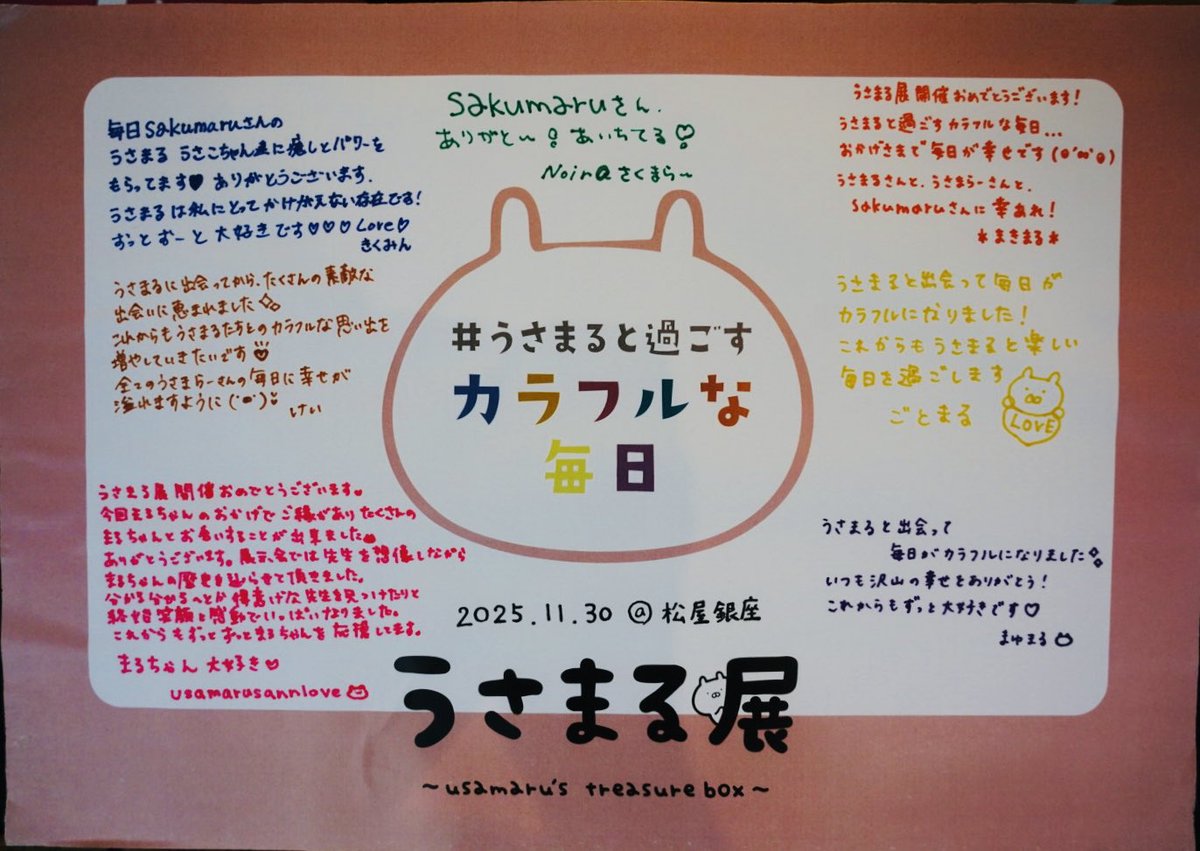 毎日sakumaruさんの
うさまる うさこちゃん達に癒しとパワーを
もらってます♥ ありがとうございます。
うさまるは私にとってかけがえない存在です!
ずっとずーと大好きです♡♡♡Love♡
きくみん
sakumaruさん、
ありがと〜! あいちてる♡!
Noinaさくまら〜
うさまる展開催おめでとうございます!
うさまると過ごすカラフルな毎日...
おかげさまで毎日が幸せです
うさまるさんと、うさまらーさんと、
sakumaruさんに幸あれ!
*まきまる*
うさまるに出会ってから、たくさんの素敵な
出会いに恵まれました
これからもうさまるた方とのカラフルな思い出を
増やしていきたいです
全てのうさまらーさんの毎日に幸せが
溢れますように
けい
うさまると出会って毎日が
カラフルになりました!
これからもうさまると楽しい
毎日を過ごします
ごとまる
LOVE
#うさまると過ごす
カラフルな
毎日
うさまる展開催おめでとうございます。
今回まるちゃんのおかげでご縁がありたくさんの
まるちゃんとお会いすることが出来ました
ありがとうございます。展示会では先生を想像しながら
まるちゃんの歴史を辿らせて頂きました。
分かる分かる〜とか 先生を見つけたりと
終始笑顔と感動でいっぱいなりました。
これからもずっとずっとまるちゃんを応援してます。
まるちゃん大好き♡
usamarusannlove
うさまると出会って
毎日がカラフルになりました
いつも沢山の幸せをありがとう!
これからもずっと大好きです♡
まゆまる
2025.11.30 @ 松屋銀座
うさまる展
〜usamaru's treasure box〜